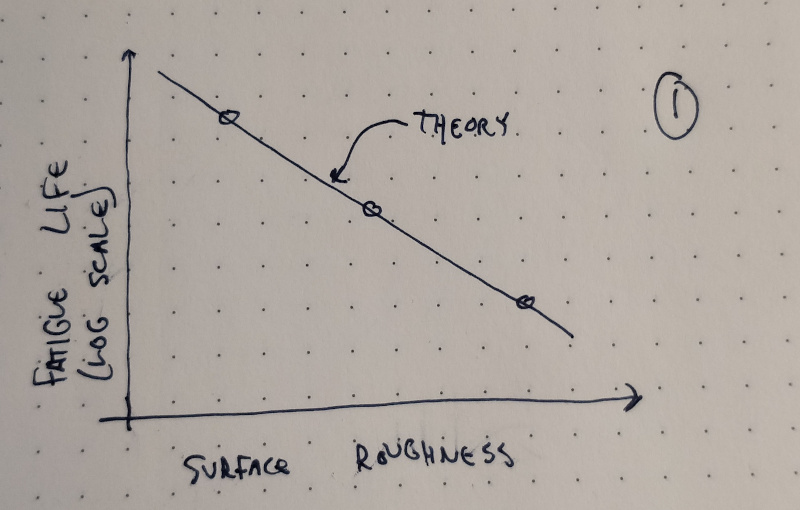 THEORY
1
FATIGUE LIFE
(LOG SCALE)
SURFACE ROUGHNESS